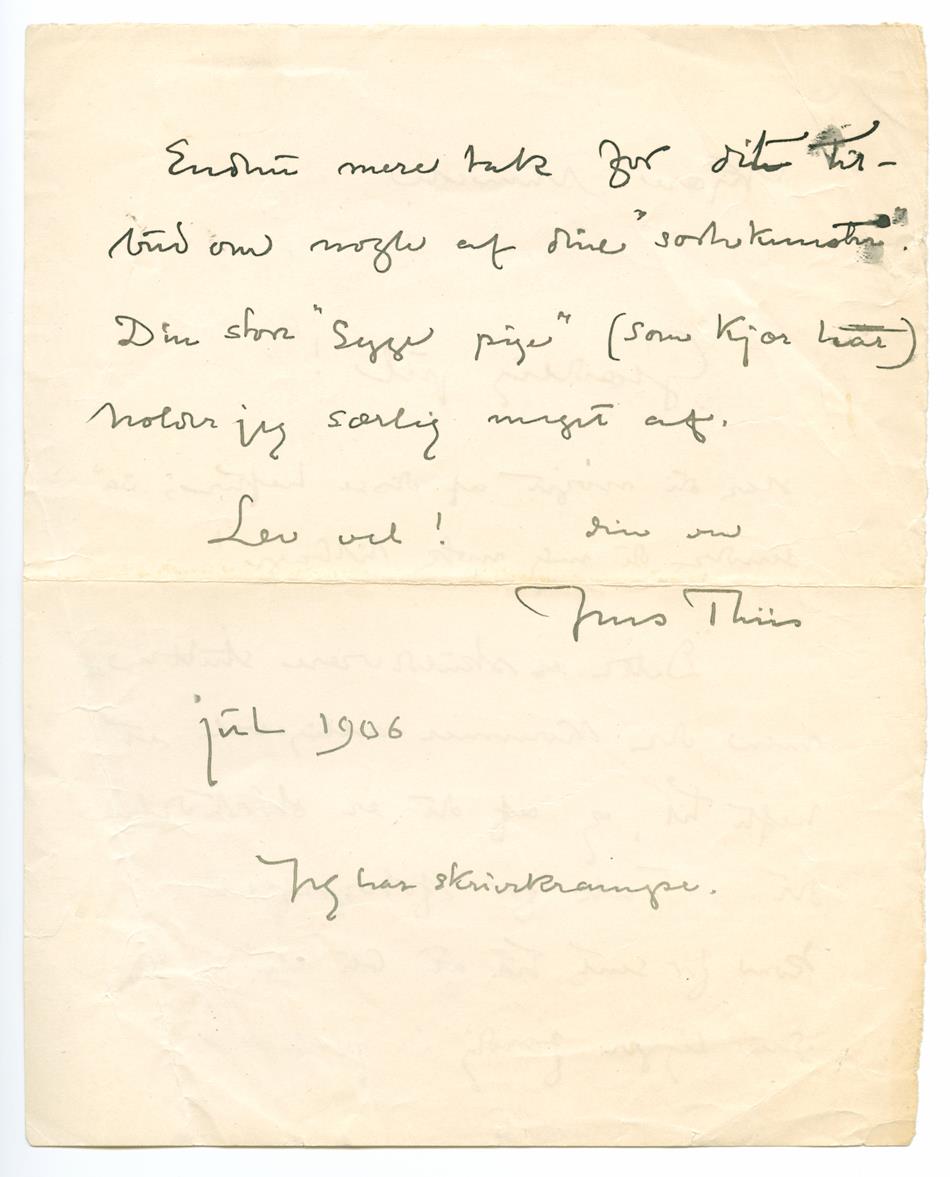 Endnu mere tak for dit til-
bud om nogle af dine "sortekunster".
Din store "Syge pige" (som Kjær har)
holder jeg særlig meget af.
Lev vel! din ven
Jens Thiis
jul 1906
Jeg har skrivekrampe.